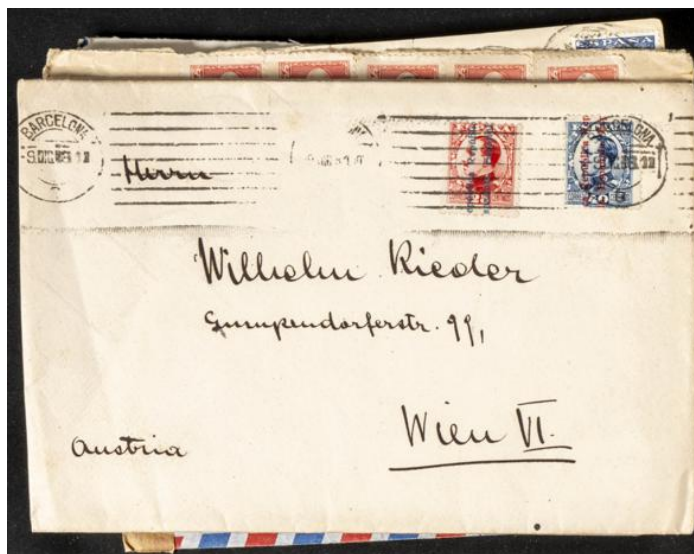 BARCELONA
BARCELONA
Herrn
Wilhelm Rieder
Gumpendorferstr. 99,
Wien VI.
Austria